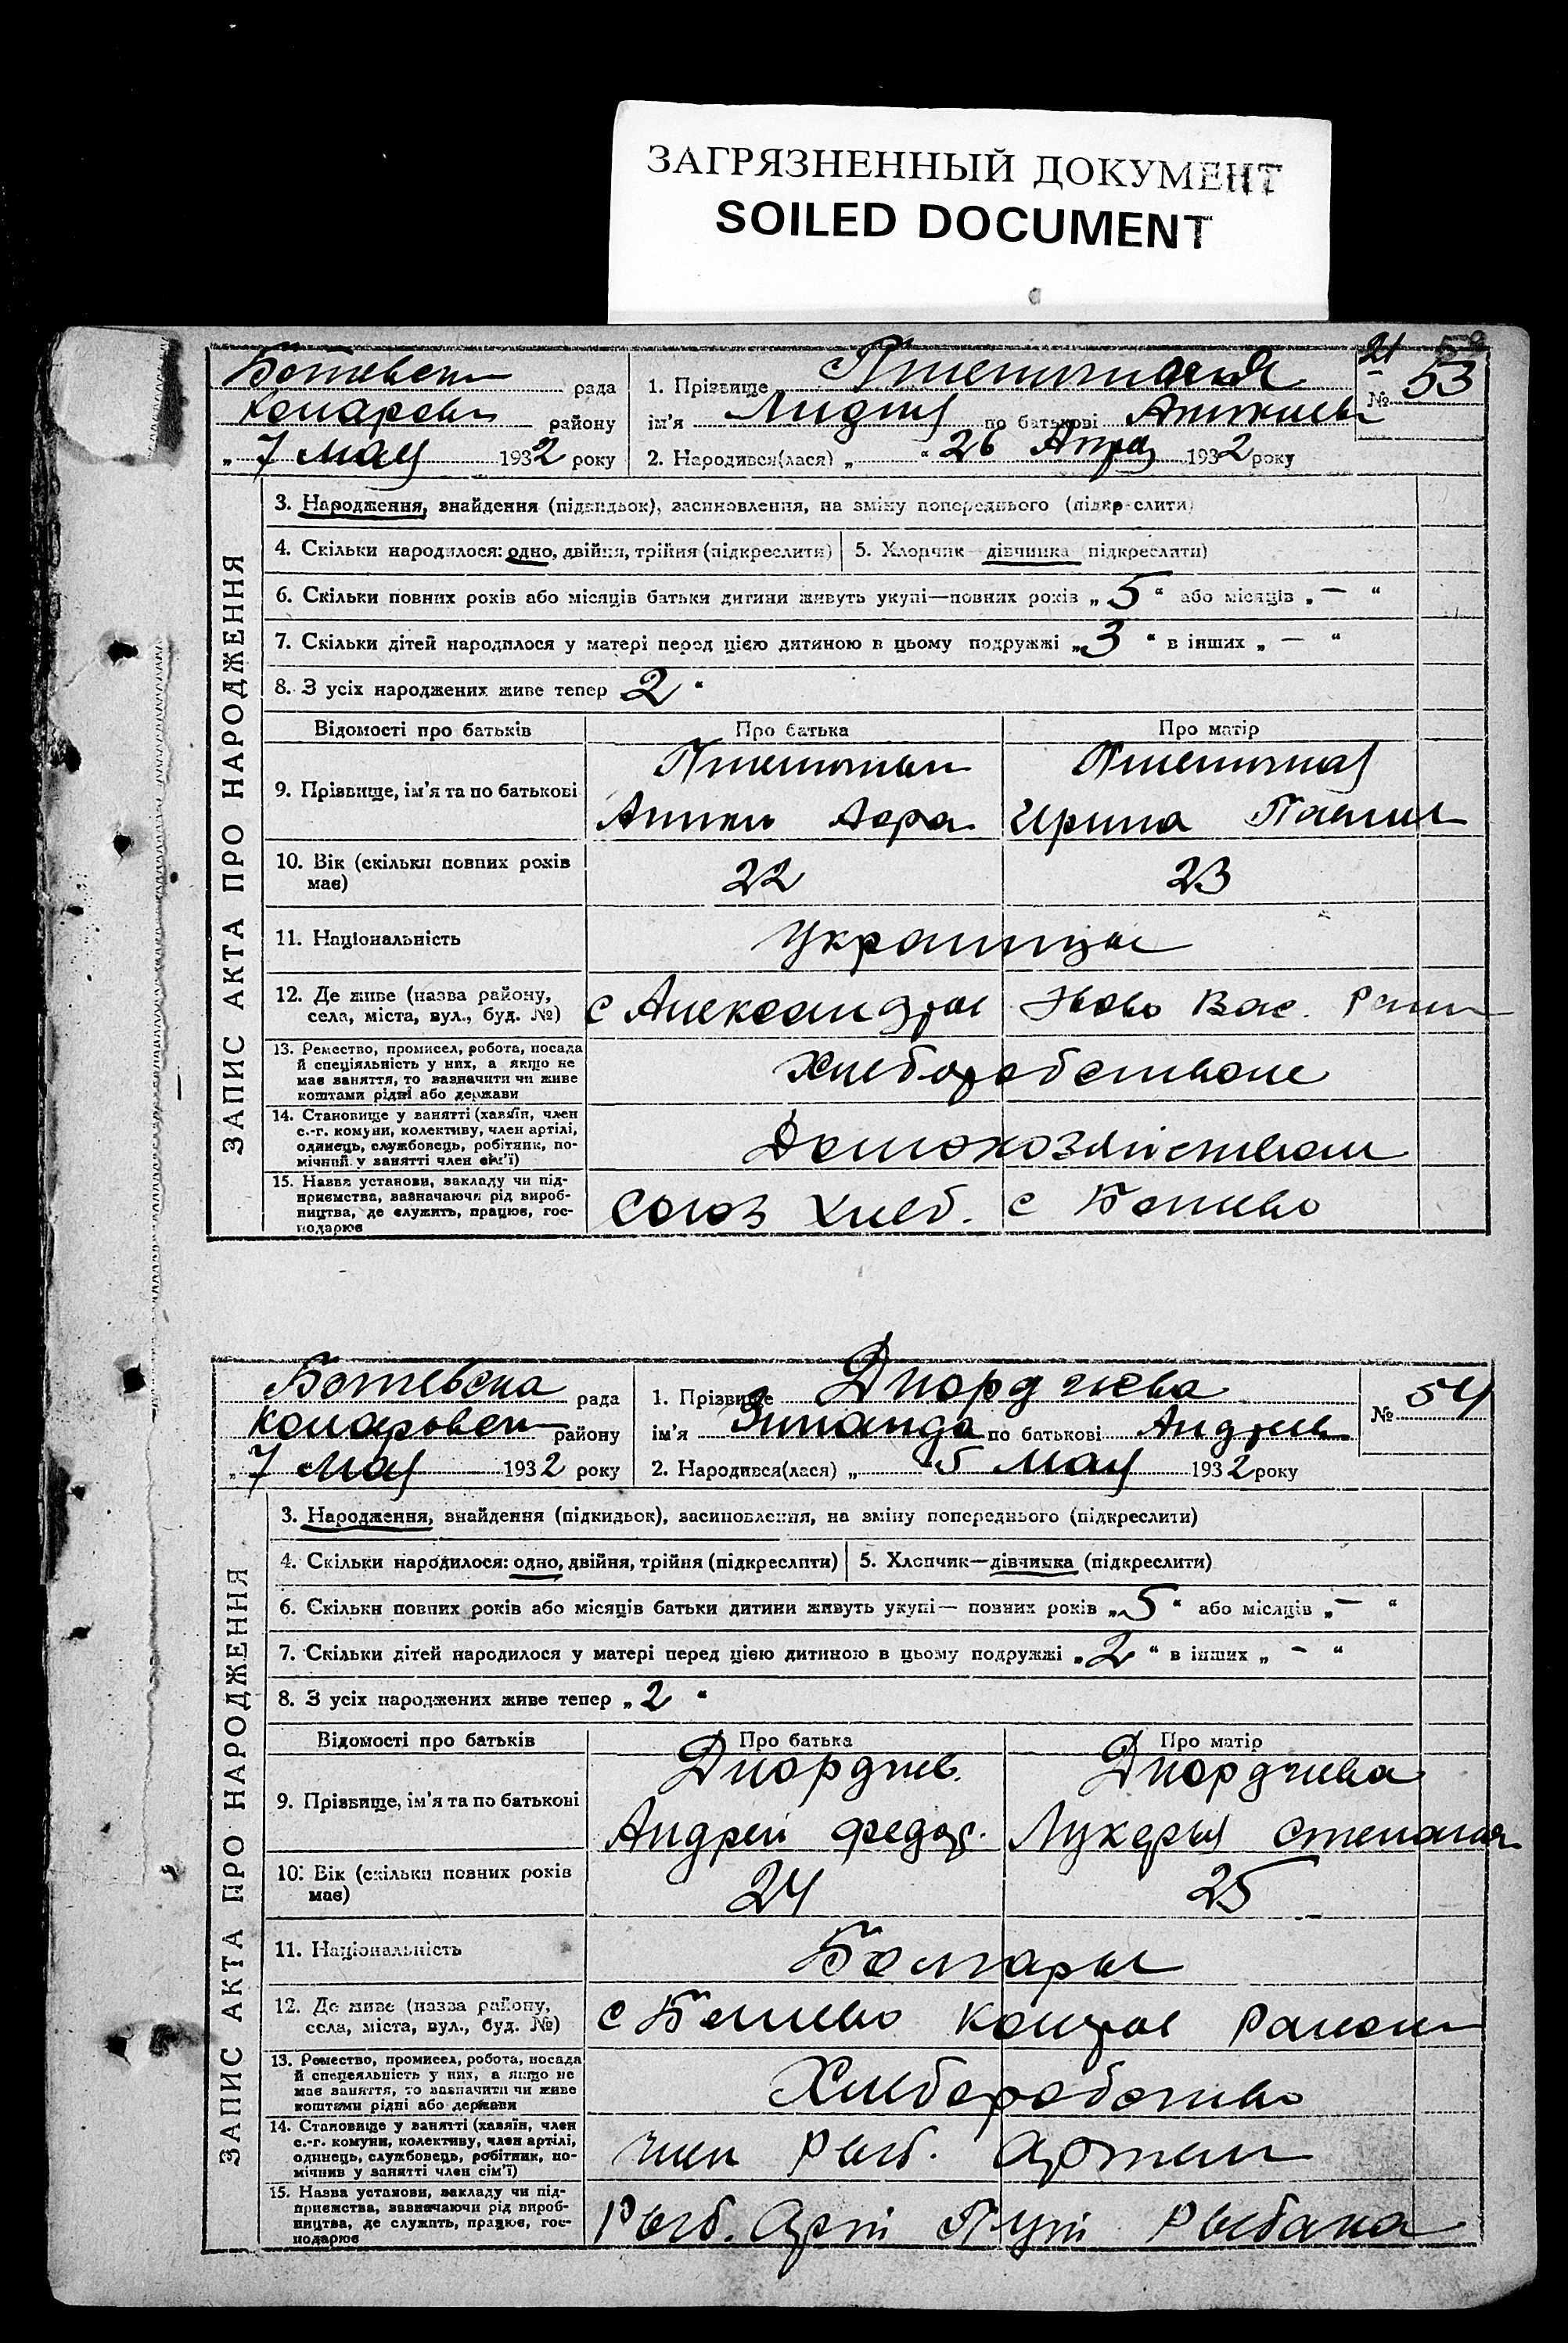 ЗАГРЯЗНЕННЫЙ ДОКУМЕНТ
SOILED DOCUMENT
21 53
Ботиевск рада 1. Прізвище Пшеничная № 53
Комаровск району ім'я Лидия по батькові
„ 7 Мая 1932 року 2. Народився(лася) „ “ 26 Апр 1932 року
ЗАПИС АКТА ПРО НАРОДЖЕННЯ
3. Народження, знайдення (підкидьок), засиновлення, на зміну попереднього (підкреслити)
4. Скільки народилося: одно, двійня, трійня (підкреслити) 5. Хлопчик—дівчинка (підкреслити)
6. Скільки повних років або місяців батьки дитини живуть укупі—повних років „ 5 “ або місяців „ — “
7. Скільки дітей народилося у матері перед цією дитиною в цьому подружжі „ 3 “ в інших „ — “
8. З усіх народжених живе тепер 2 “
Відомості про батьків Про батька Про матір
9. Прізвище, ім'я та по батькові Пшеничный Пшеничная
Ирина
10. Вік (скільки повних років має) 22 23
11. Національність Украинцы
12. Де живе (назва району, села, міста, вул., буд. №) с Александров Ново Вас. Район
13. Ремество, промисел, робота, посада й спеціяльність у них, а якщо не має заняття, то зазначити чи живе коштами рідні або держави Хлеборобством
14. Становище у занятті (хазяїн, член с.-г. комуни, колективу, член артілі, одинець, службовець, робітник, помічний у занятті член сім'ї)
15. Назва установи, закладу чи підприємства, зазначаючи рід виробництва, де служить, працює, господарює Союз Хлеб. с Ботиево
Ботиевска рада 1. Прізвище Диорджева № 54
Комаровск району ім'я Зинаида по батькові Андреев
„ 7 Мая 1932 року 2. Народився(лася) „ “ 5 Мая 1932 року
ЗАПИС АКТА ПРО НАРОДЖЕННЯ
3. Народження, знайдення (підкидьок), засиновлення, на зміну попереднього (підкреслити)
4. Скільки народилося: одно, двійня, трійня (підкреслити) 5. Хлопчик—дівчинка (підкреслити)
6. Скільки повних років або місяців батьки дитини живуть укупі— повних років „ 5 “ або місяців „ — “
7. Скільки дітей народилося у матері перед цією дитиною в цьому подружжі „ 2 “ в інших „ — “
8. З усіх народжених живе тепер „ 2 “
Відомості про батьків Про батька Про матір
9. Прізвище, ім'я та по батькові Диорджев. Диорджева
Андрей Федор. Лукерья Степанов
10. Вік (скільки повних років має) 24 25
11. Національність Болгары
12. Де живе (назва району, села, міста, вул., буд. №) с Ботиево Комров Район
13. Ремество, промисел, робота, посада й спецеяльність у них, а якщо не має заняття, то зазначити чи живе коштами рідні або держави Хлеборобство
14. Становище у занятті (хазяїн, член с.-г. комуни, колективу, член артілі, одинець, службовець, робітник, помічник у занятті член сім'ї) член Рыб. Артели
15. Назва установи, закладу чи підприємства, зазначаючи рід виробництва, де служить, працює, господарює Рыб. Арт Пут Рыбака